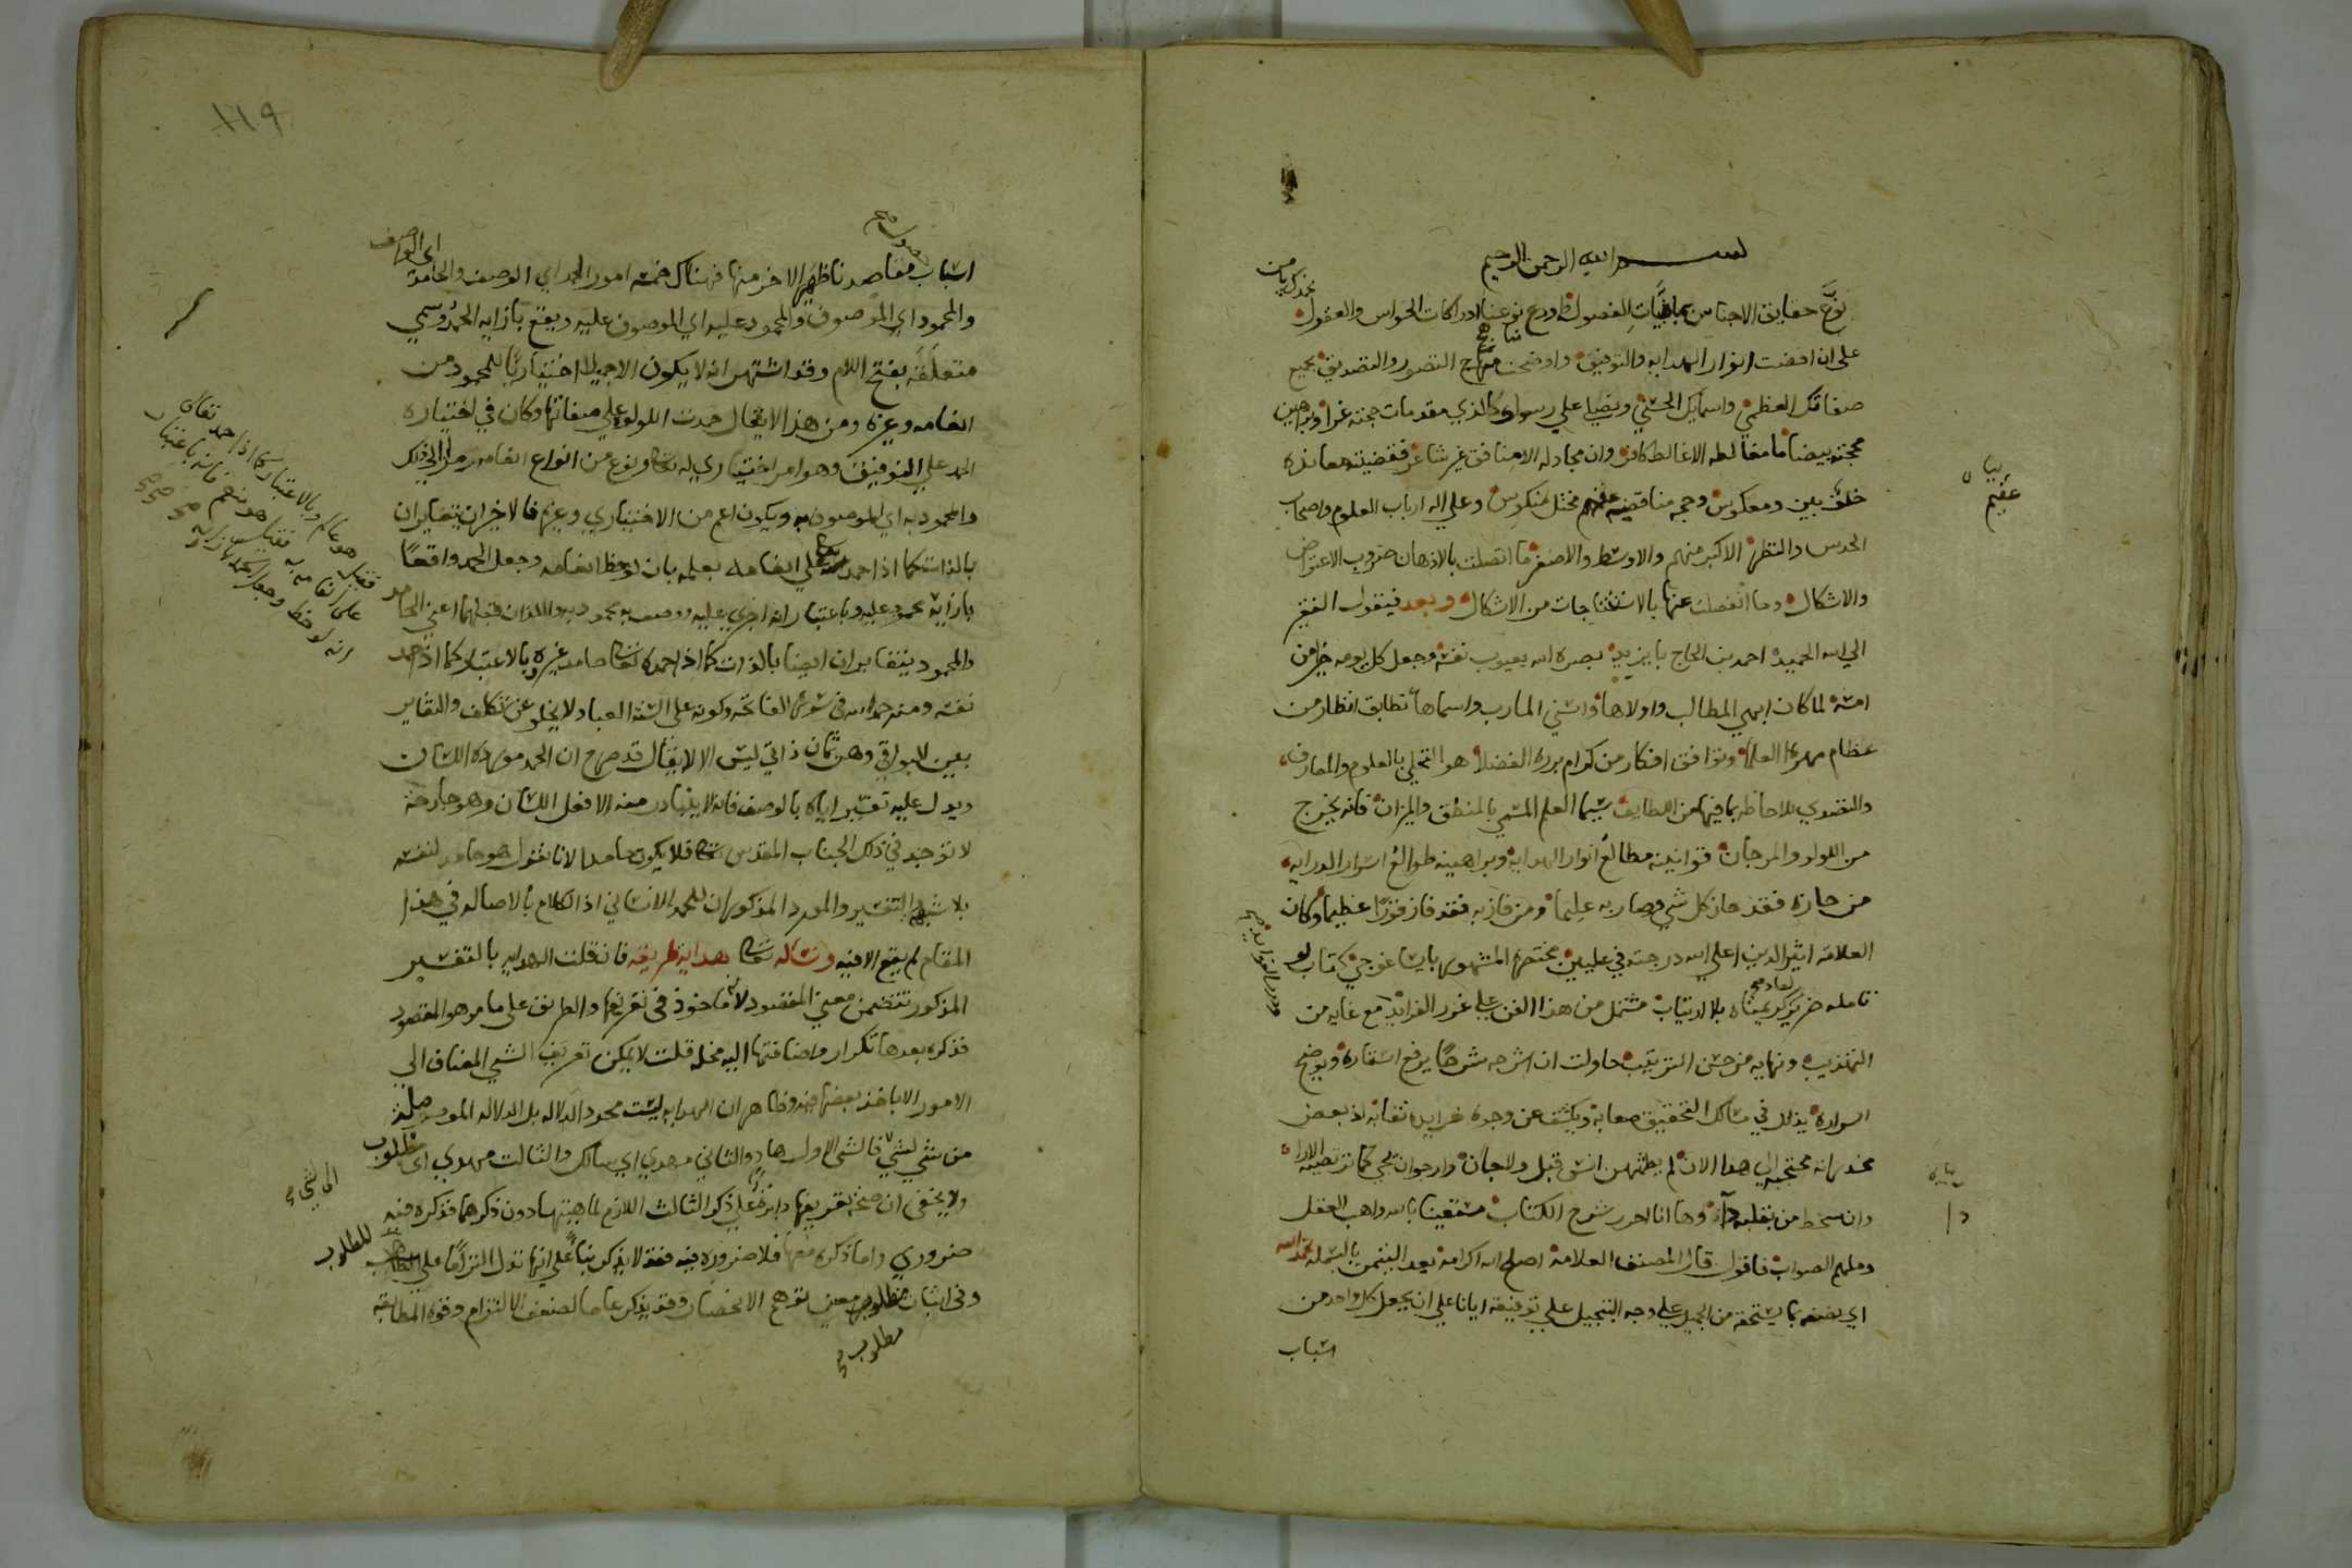 بسم الله الرحمن الرحيم
نحمدك يا من
نوع حقايق الاجناس بماهيات الفصول واودع نوعنا ادراكات الحواس والعقول
على ان افضت انوار الهدايه والتوفيق واوضحت منهاج التصور والتصديق بجميع
صفاتك العظمي واسمايك الحسني ونصلي علي رسولك الذي مقدمات حجته غرا وبراهين
محجته بيضا ما مغالطه الاغاليط كافر وان مجادله الامنافق غير شاعر فقضيته معانده
خلف بين ومعكوس وحجه مناقضيه عقيم مختل منكوس وعلي اله ارباب العلوم واصحاب
الحدس والنظر الاكبر منهم والاوسط والاصغر ما اتصلت بالاذهان ضروب الاعتراض
والاشكال وما انفصلت عنها بالاستنتاجات من الاشكال وبعد فيقول الفقير
الي الله الحميد احمد بن الحاج بايزيد بصره الله بعيوب نفسه وجعل كل يومه خيرا من
امسه لما كان ابهي المطالب واولاها واسني المارب واسماها تطابق انظار من
عظام مهره العلما وتوافق افكار من كرام برره الفضلا هو التحلي بالعلوم والمعارف
والتصدي للاحاطه بما فيها من اللطايف سيما العلم المسمي بالمنطق والميزان فانه يخرج
من اللولو والمرجان قوانينه مطالع انوار الهدايه وبراهينه طوالع اسرار الدرايه
من حازه فقد حاز كل شي وصار به عليما ومن فاز به فقد فاز فوزا عظيما وكان
العلامه اثير الدين اعلي الله درجته في عليين مختصره المشهور بايساغوجي كتاب لو
تامله بلا ارتياب مشتمل من هذا الفن علي غرر الفرايد مع غايه من
ودرر الفوايد صح
التهذيب ونهايه من حسن الترتيب حاولت ان اشرحه شرحا يرفع استاره ويوضح
اسراره يذلل في مسالك التحقيق صعابه ويكشف عن وجوه خرايده نقابه اذ بعض
مخدراته محتجبه الي هذا الان لم يطمثهن انس قبل ولا جان وارجو ان يجي كما ترتضيه الارا
وان سخط من بقلبه دا وها انا احرر شرح الكتاب مستعينا بالله واهب العقل
وملهم الصواب فاقول قال المصنف العلامه اصلح الله اكرامه بعد التيمن بالبسمله نحمد الله
اي نصفه بما يستحقه من الجميل علي وجه التبجيل علي توفيقه ايانا علي ان يجعل كل واحد من
اسباب
بيان
عقيم
دا
١١٩
اسباب مقاصدنا ظهير الاخر منها فهناك خمسه امور الحمد اي الوصف والحامد
اي الواصف
والمحمود اي الموصوف والمحمود عليه اي الموصوف عليه ويقع بازايه الحمد وسمي
متعلقه بفتح اللام وقد اشتهر انه لا يكون الا جميلا اختياريا للمحمود من
انعامه وغيره ومن هذا لا يقال حمدت اللولو علي صفايها وكان في اختياره
الحمد علي التوفيق وهو امر اختياري له تعالى ونوع من انواع انعامه رمزا الي ذلك
والمحمود به اي الموصوف به ويكون اعم من الاختياري وغيره فالاخيران يتغايران
بالذات كما اذا احمد علي انعامه بعلمه بان لوحظ انعامه وجعل الحمد واقعا
بازايه محمود عليه وباعتبار انه اجري عليه ووصف به محمود به واللذان قبلهما اعني الحامد
والمحمود يتغايران ايضا بالذات كما اذا احمده تعالى حامد غيره وبالاعتبار كما اذا حمد
نفسه ومنه حمد الله في سوره الفاتحه وكونه علي السنه العباد لا يخلو عن تكلف والتغاير
بين البواقي وهن ثمان ذاتي ليس الا لا يقال قد صرح ان الحمد مورده اللسان
ويدل عليه تفسير اياه بالوصف فانه لا يتبادر منه الا فعل اللسان وهو جارحه
لا توجد في ذلك الجناب المقدس تعالى فلا يكون حامدا لانا نقول هو حامد لنفسه
بلا شبهه والتفسير والمورد المذكوران للحمد الانساني اذ الكلام بالاصاله في هذا
المقام لم يقع الا فيه ونساله تعالى هدايه طريقه فان قلت الهدايه بالتفسير
المذكور تتضمن معني المقصود لانه ماخوذ في تعريفها والطريق علي ما مر هو المقصود
فذكره بعدها تكرار واضافتها اليه مخله قلت لا يمكن تعريف الشي المضاف الي
الامور الا باخذ بعضها فيه وظاهر ان الهدايه ليست مجرد الدلاله بل الدلاله الموصله
من شي لشي فالشي الاول هاد والثاني مهدي اي سالك والثالث مهدي اي مطلوب
ولا يخفى ان صحه تعريفها دايره علي ذكر الثالث اللازم لماهيتها دون ذكرهما فذكره فيه
الي شي صح
ضروري واما ذكره معها فلا ضروره فيه فقد لا يذكر بناء علي انها تدل التزاما علي
للمطلوب
وفي اثبات مطلوب معين توهم الانحصار وقد يذكر عاما لضعف الالتزام وقوه المطابقه
مطلوب صح